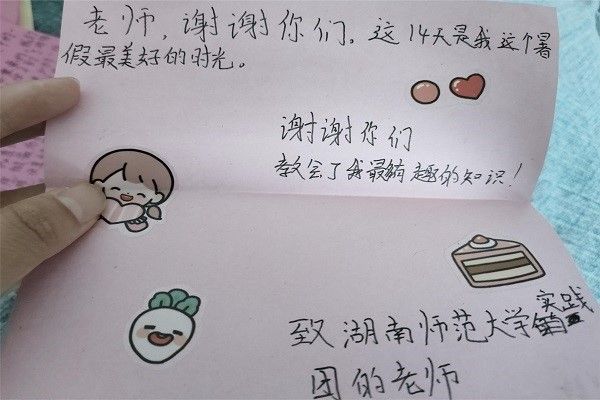 老师，谢谢你们。这14天是我这个暑
假最美好的时光。
谢谢你们
教会了我最有趣的知识！
致湖南师范大学实践
团的老师